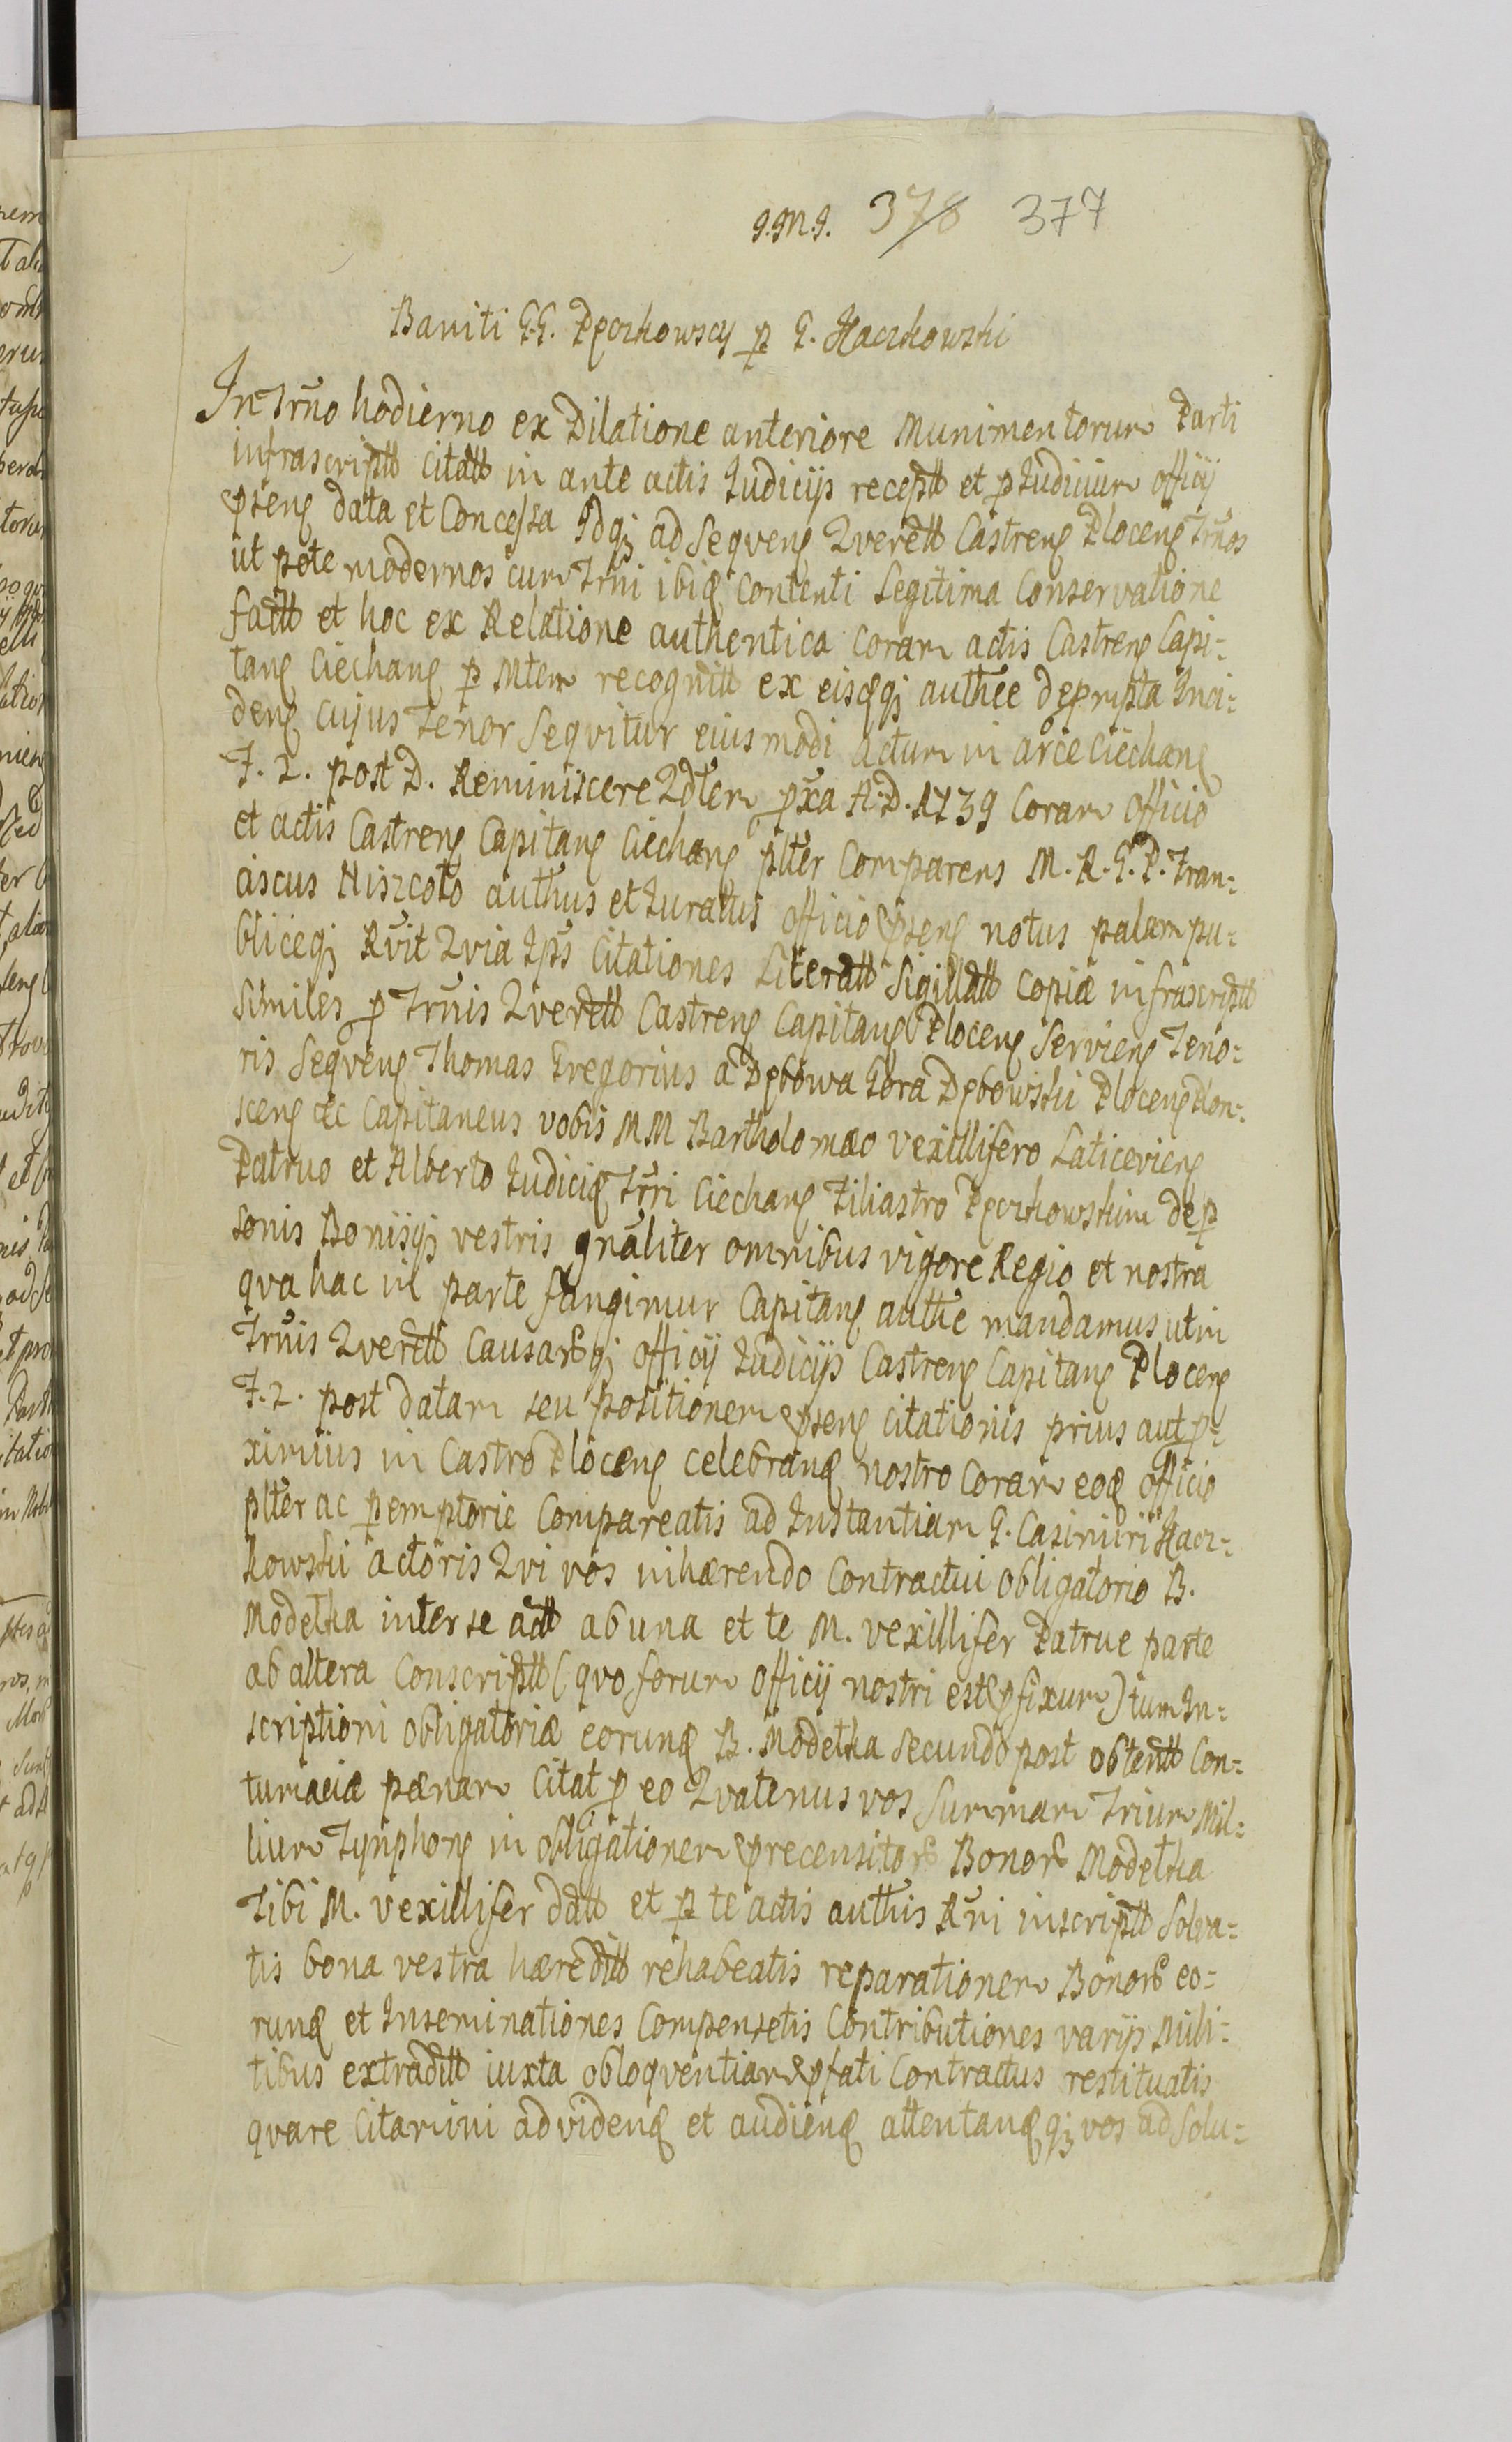 J.M.J. 378 377
Baniti G.G. Pęczkowscy p G. Kaczkowski
In Trno hodierno ex Dilatione anteriore Munimentorum Parti
infrascriptt Citatt in ante actis Judicijs receptt et p Judicium officij
pseng data et Concessa Idqz ad Seqveng Qverett Castreng Ploceng Trnos
ut pote modernos cum Trni ibid Contenti Legitima Conservatione
fatt et hoc ex Relatione authentica Coram actis Castreng Capi=
tang Ciechang p Mtem recognitt ex eisdqz authee deprupta Inci=
deng cujus Tenor Seqvitur eiusmodi Actum in arce Ciechang
F. 2. post D. Reminiscere Qdtem pxa A.D. 1739 Coram Officio
et actis Castreng Capitang Ciechang plter Comparens M. R. G. P. Fran=
ciscus Niszcoto authus et Juratus officio pseng notus palam pu=
bliceqz Rvit Qvia Ips Citationes Literatt Sigillatt Copiæ infrascriptt
Similes p Trnis Qverett Castreng Capitang Ploceng Servieng Teno=
ris Seqveng Thomas Gregorius a Dębowa Gora Dębowski Ploceng Plon=
sceng etc Capitaneus vobis MM Bartholomæo vexillifero Laticevieng
Patruo et Alberto Judicid Trri Ciechang Filiastro Pęczkowskim de p
sonis Bonisqz vestris gnaliter omnibus vigore Regio et nostra
qva hac in parte fungimur Capitang authe mandamus ut in
Trnis Qverett Causarqz officij Judicijs Castreng Capitang Ploceng
F. 2. post datam seu positionem pseng citationis prius aut p=
ximius in Castro Ploceng celebrand nostro Coram eod officio
plter ac pemptorie Compareatis ad Instantiam G. Casimiri Kacz=
kowski actoris Qvi vos inhærendo Contractui obligatorio B.
Modełka inter se actt ab una et te M. vexillifer Patrue parte
ab altera Conscriptt (qvo forum officij nostri est pfixum) tum In=
scriptioni obligatoriæ eorund B. Modełka Secundo post obtentt Con=
tumaciæ pænam Citat p eo Qvatenus vos Summam Trium Mil=
lium Tynphong in obligationem precensitor Bonor Modełka
Tibi M. vexillifer datt et p te actis authis Rni inscriptt Solva=
tis bona vestra hæreditt rehabeatis reparationem Bonor eo=
rund et Inseminationes Compensetis Contributiones varijs Mili=
tibus extraditt iuxta obloqventiam pfati Contractus restituatis
qvare Citamini ad videnð et audiend attentand qz vos ad Solu=